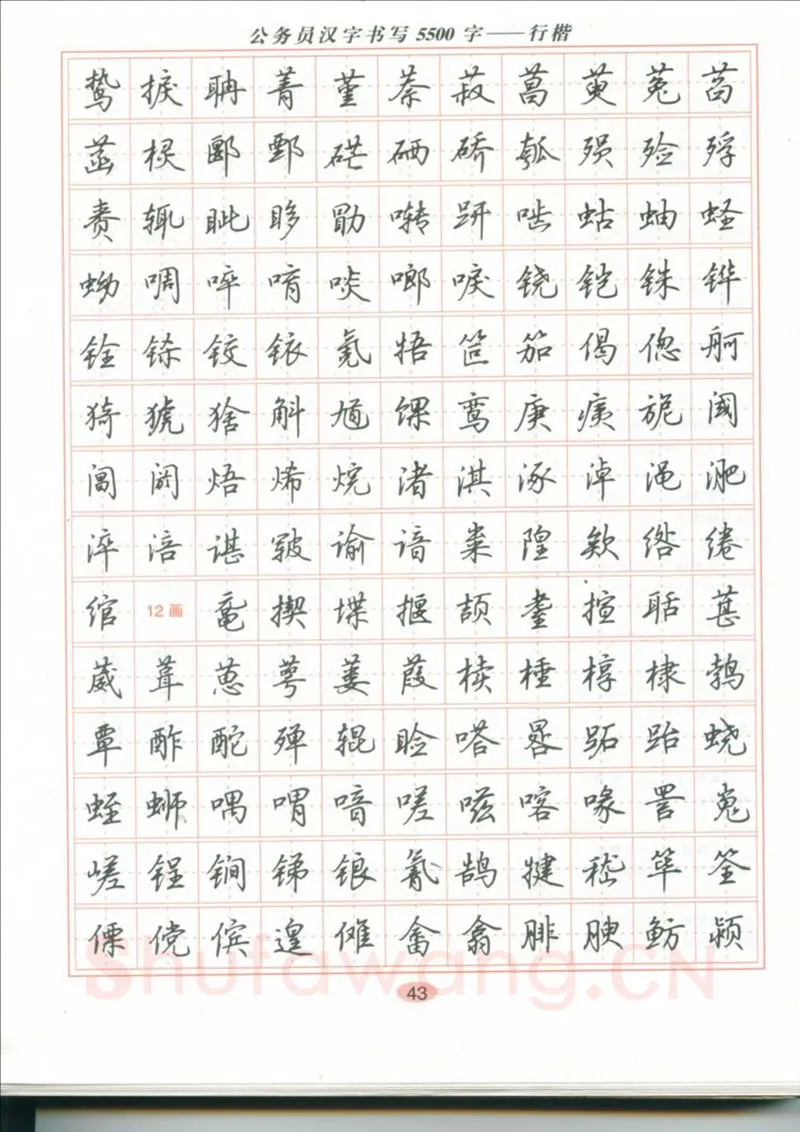 公务员汉字书写5500字——行楷
鸷捩聃菁堇萘菽菖萸菟萏
菡棂鄄鄄硭硒硚瓠殒殓殍
赉辄眦眵勖啭趼啮蛄蚰蛏
蚴啁啐唷啖啷唳铙铠铢铧
铨铩铰铱氪牾笸笳偈偬舸
猗猇猞斛馗馃鸾庚痍旎阈
阊阏焐烯烷渚淇涿淖渑淝
淬涪谌皲谕谙粜隍欸绺绻
绾 12画 鼋揳堞揠颉耋揎聒葚
葳葺葱萼蒌葭椟棰椁棣鹁
覃酢酡殚辊睑嗒晷跖跆蛲
蛭蛳喁喟喑嗟嗞喀喙罟嵬
嵯锃锏锑锒氰鹄犍嵇筚筌
傈傥傧遑傩畲翕腓腴鲂颍
43
Shufawang.CN